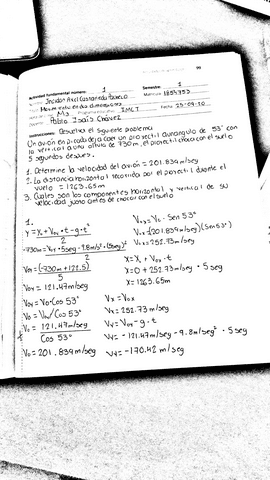 Actividad Fundamental número: 1 Semestre: 1
Nombre: Jordan Axel Castañeda Pacheco Matrícula: 1854753
Movimiento en dos dimensiones
M3 IMCT Fecha: 25-09-20
Pablo Isaís Chávez
Instrucciones: Resuelva el siguiente problema
Un avión en picada deja caer un proyectil a un ángulo de 53° con
la vertical a una altura de 730m, el proyectil choca con el suelo
5 segundos después.
1. Determine la velocidad del avión = 201.839 m/seg
2. La distancia horizontal recorrida por el proyectil durante el
vuelo = 1263.65m
3. Cuales son los componentes horizontal y vertical de su
velocidad justo antes de chocar con el suelo
1.
y = Y₀ + V₀y • t - g • t²
2
-730m = V₀y • 5seg - 9.8m/s² • (5seg)²
2
V₀y = (-730m + 122.5)
5
V₀y = 121.47m/seg
V₀y = V₀ • Cos 53°
V₀ = V₀y/Cos 53°
V₀ = 121.47m/seg
Cos 53°
V₀ = 201.839m/seg
V₀x = V₀ • Sen 53°
V₀x = (201.839m/seg)(Sen 53°)
V₀x = 252.73m/seg
X = X₀ + V₀x • t
X = 0 + 252.73m/seg • 5seg
X = 1263.65m
Vx = V₀x
Vx = 252.73 m/seg
Vy = V₀y - g • t
Vy = -121.47m/seg - 9.8m/seg² • 5seg
Vy = -170.42 m/seg